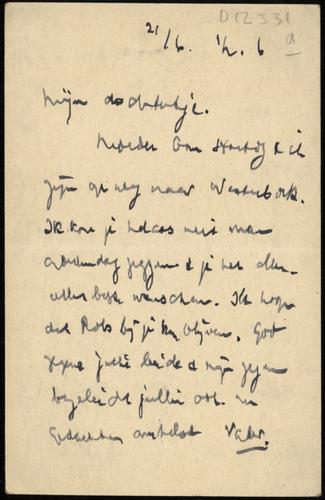 D12331
a
21/6. ½. 6
Mijn dochtertje.
Moeder Oom & ik
zijn op weg naar Westerbork.
Ik kon je helaas niet meer
goedendag zeggen & je het aller-
allerbeste wenschen. Ik hoop
dat Rob bij je kan blijven. God
zegene jullie beide & mijn zegen
begeleidt jullie ook. In
gedachten omhelst Vader.